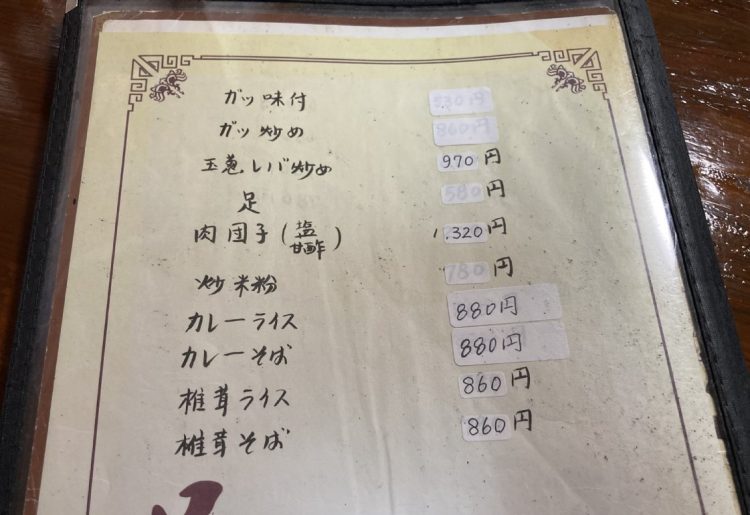 ガツ味付 530円
ガツ炒め 860円
玉葱レバ炒め 970円
足 580円
肉団子(塩 甘酢) 1.320円
炒米粉 780円
カレーライス 880円
カレーそば 880円
椎茸ライス 860円
椎茸そば 860円